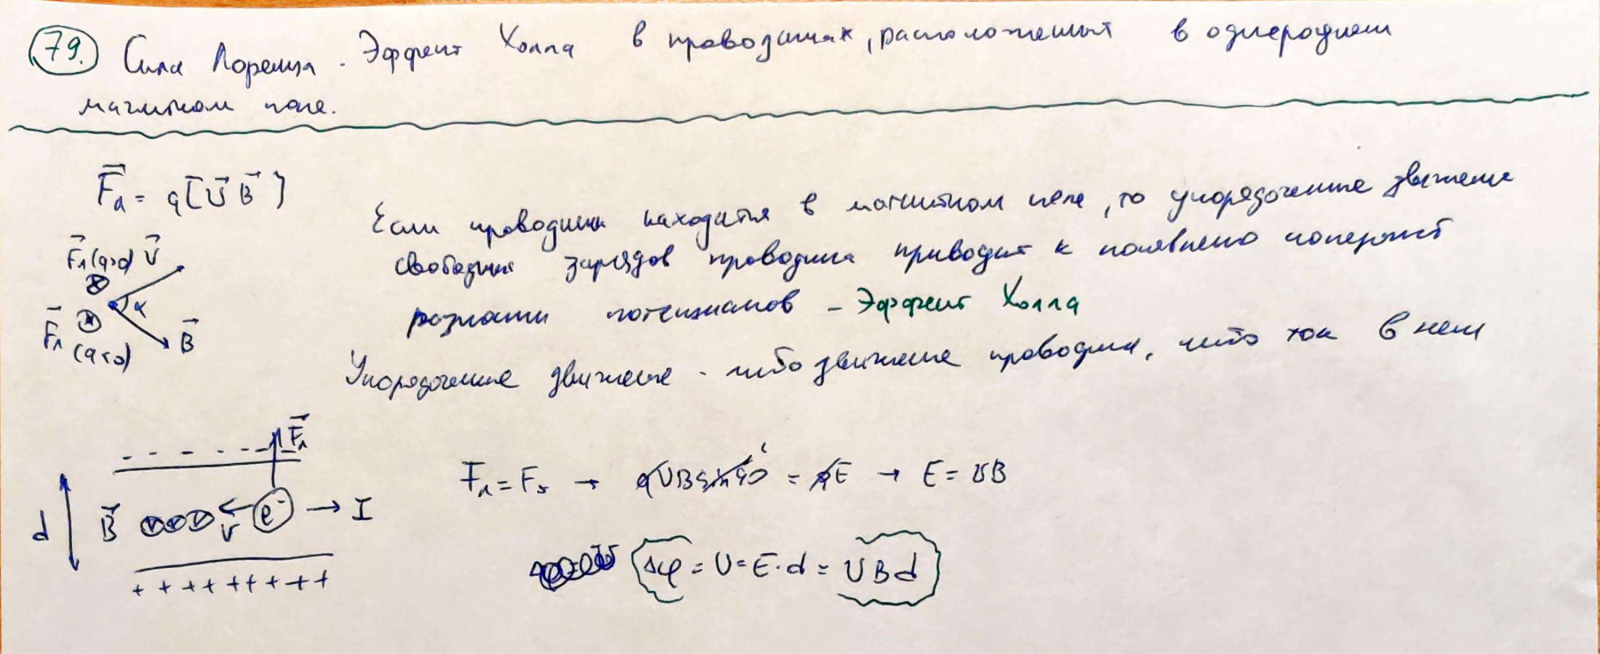 79. Сила Лоренца. Эффект Холла в проводниках, расположенных в однородном
магнитном поле.
F⃗л = q[v⃗ B⃗]
Если проводник находится в магнитном поле, то упорядоченное движение
свободных зарядов проводника приводит к появлению поперечной
разности потенциалов - Эффект Холла
Упорядоченное движение - либо движение проводника, либо ток в нем
F⃗л (q>0) v⃗
α
F⃗л (q<0) B⃗
- - - - - - F⃗л
d B⃗ v e⁻ → I
+ + + + + + + +
Fл = Fэ → qvB sin 90° = qE → E = vB
Δφ = U = E·d = vBd